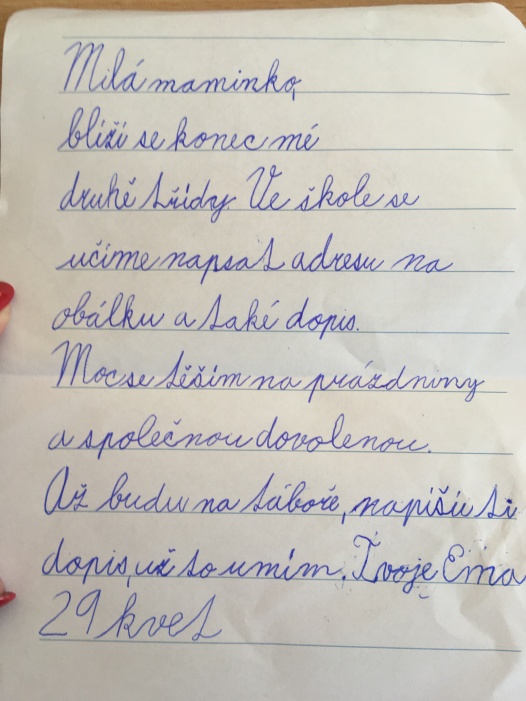 Milá maminko,
blíží se konec mé
druhé třídy. Ve škole se
učíme napsat adresu na
obálku a také dopis.
Moc se těším na prázdniny
a společnou dovolenou.
Až budu na táboře, napíšu ti
dopis, už to umím. Tvoje Ema
29 kvet